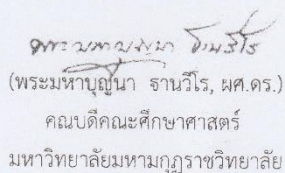 พระมหาบุญนา ฐานวีโร
(พระมหาบุญนา ฐานวีโร, ผศ.ดร.)
คณบดีคณะศึกษาศาสตร์
มหาวิทยาลัยมหามกุฏราชวิทยาลัย